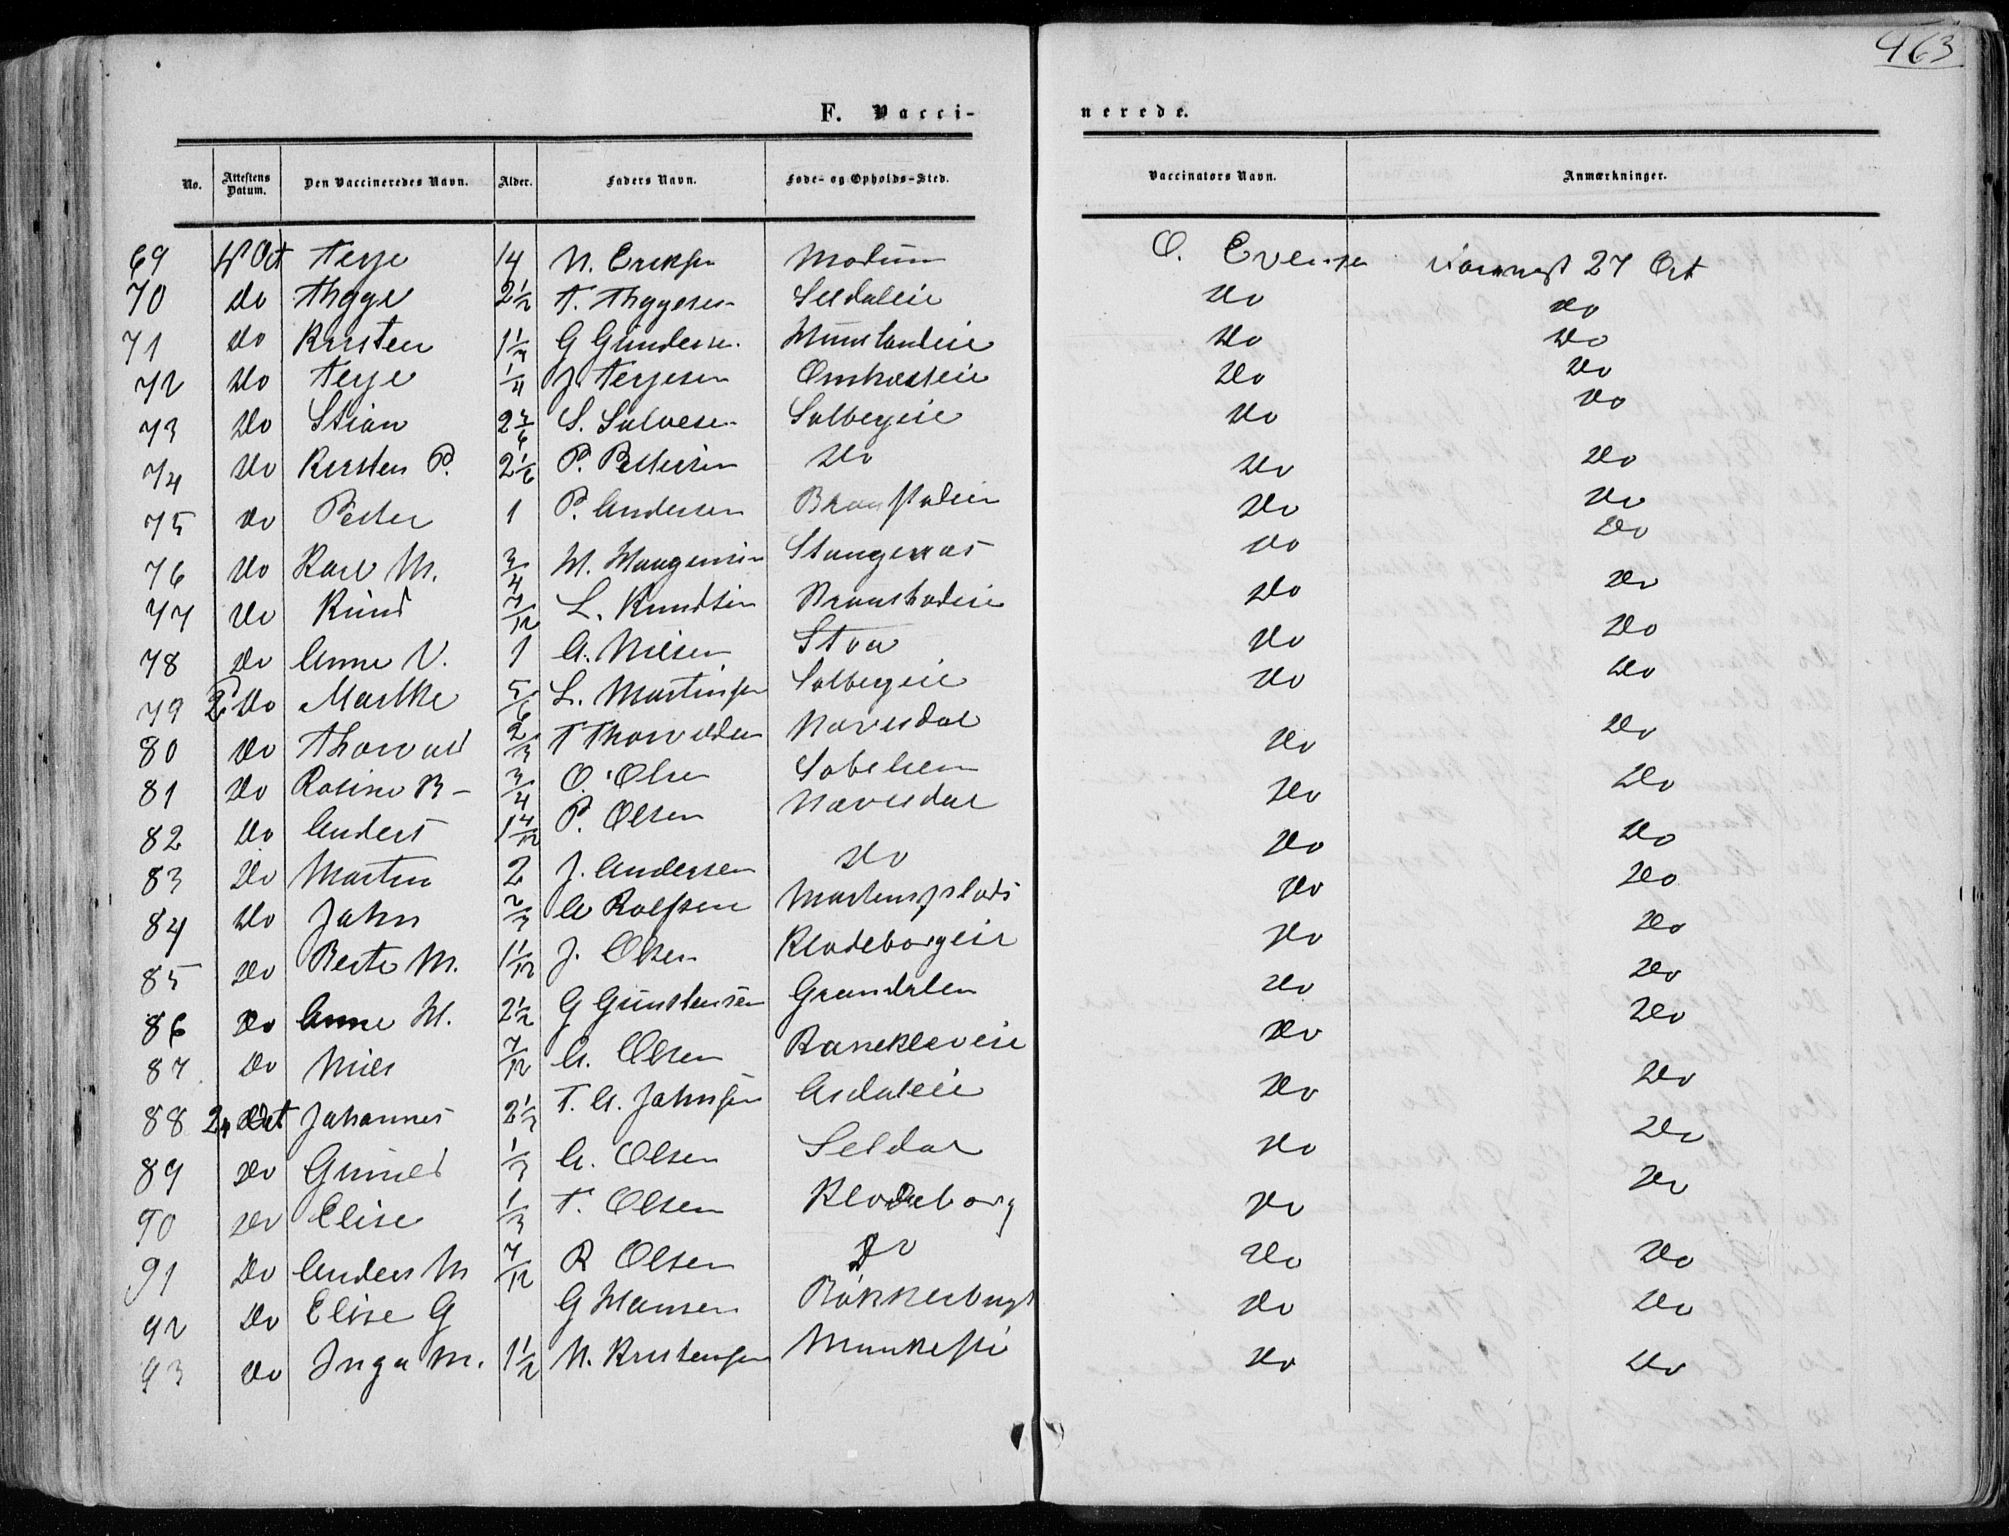 463
F. Vacci-
nerede.
No. Attestens Datum. Den Vaccineredes Navn. Alder. Faders Navn. Føde- og Opholds-Sted. Vaccinators Navn. Anmærkninger.
69 Oct Terje 14 N. Eriksen Modum O. Evensen 27 Oct
70 do Thyge 2 1/2 T. Thygesen Seldaleie Do Do
71 do Kirsten G Gundersen Do Do
72 Do Terje 1/4 J. Terjesen Do Do
73 Do Stian S. Salvesen Solbergeie Do Do
74 Do Kirsten P. 2 1/6 P. Pettersen Do Do Do
75 Do Petter 1 P. Andersen Do Do
76 Do Karl M. 3/4 Stangenæs Do Do
77 Do Knud 7/12 L. Knudsen Do Do
78 Do Anne N. 1 A. Nilsen Stoa Do Do
79 Do Marthe 5/6 L. Martinsen Solbergeie Do Do
80 Do Thorvald 2/3 T Thorvaldsen Næresdal Do Do
81 Do Rosine B- 3/4 O. Olsen Do Do
82 Do Anders 1 4/12 P. Olsen Næresdal Do Do
83 Do Martin 2 J. Andersen Do Do Do
84 Do Jahn 2/3 A Rolfsen Mortensplads Do Do
85 Do Berte M. 1 1/12 J. Olsen Klodeborgeie Do Do
86 Do Anne H. 2 1/2 G Gunstensen Grændalen Do Do
87 Do Niels 7/12 A. Olsen Do Do
88 Oct Johannes T. A. Jahnsen Asdaleie Do Do
89 Do 1/3 A. Olsen Seldal Do Do
90 Do Elise 1/3 T. Olsen Klodeborg Do Do
91 Do Anders M 7/12 R Olsen Do Do Do
92 Do Elise G G Hansen Do Do
93 Do Inga M. 1 1/2 N. Kristensen Do Do